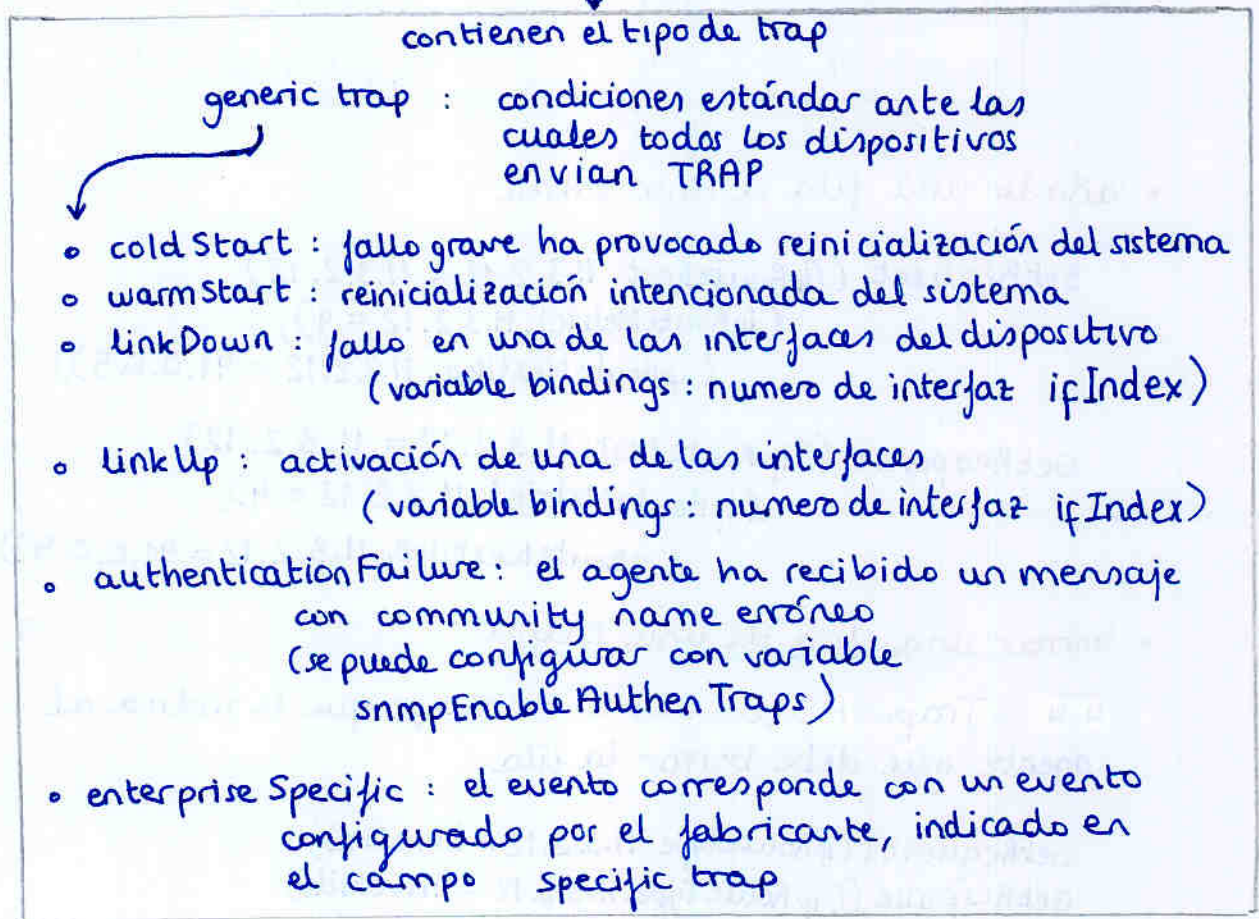 contienen el tipo de trap
generic trap : condiciones estándar ante las
cuales todos los dispositivos
envían TRAP
• coldStart : fallo grave ha provocado reinicialización del sistema
• warmStart : reinicialización intencionada del sistema
• linkDown : fallo en una de las interfaces del dispositivo
(variable bindings : numero de interfaz ifIndex)
• linkUp : activación de una de las interfaces
(variable bindings : numero de interfaz ifIndex)
• authenticationFailure : el agente ha recibido un mensaje
con community name erróneo
(se puede configurar con variable
snmpEnableAuthenTraps)
• enterpriseSpecific : el evento corresponde con un evento
configurado por el fabricante, indicado en
el campo specific trap